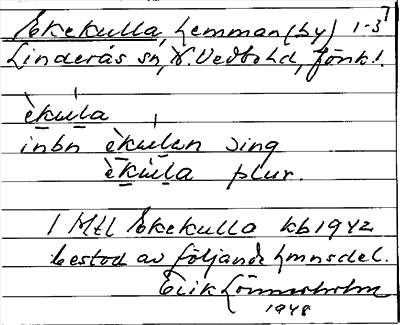 Ekekulla, hemman (by) 1-3
Linderås sn, N. Vedbo hd, Jönk. l.
èku̲la
inbn èku̲lan sing
èku̲la plur.
1 Mtl Ekekulla kb 1942
bestod av följande hmnsdel.
Erik Lönnerholm
1948